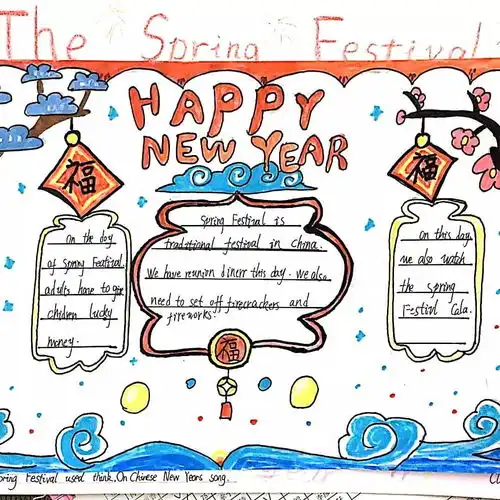 The Spring Festival
HAPPY
NEW YEAR
福
福
on the day
of Spring Featival.
adults have to give
children lucky
money.
Spring Festival is
traditional festival in China.
We have reunion dinerr this day. we also
need to set off firecrackers and
fireworks.
福
on this day
we also watch
the spring
Festivl Gala.
pring Festival used think..On Chinese New Years song.